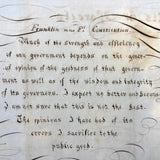 Franklin was Pr. Constitution.
Much of the strength and efficiency
of any government depends on the gener-
al opinion of the goodness of that govern-
ment as well as of the wisdom and integrity
of its governors. I expect no better and because
I am not sure that this is not the best.
The opinions I have had of its
errors I sacrifice to the
public good.